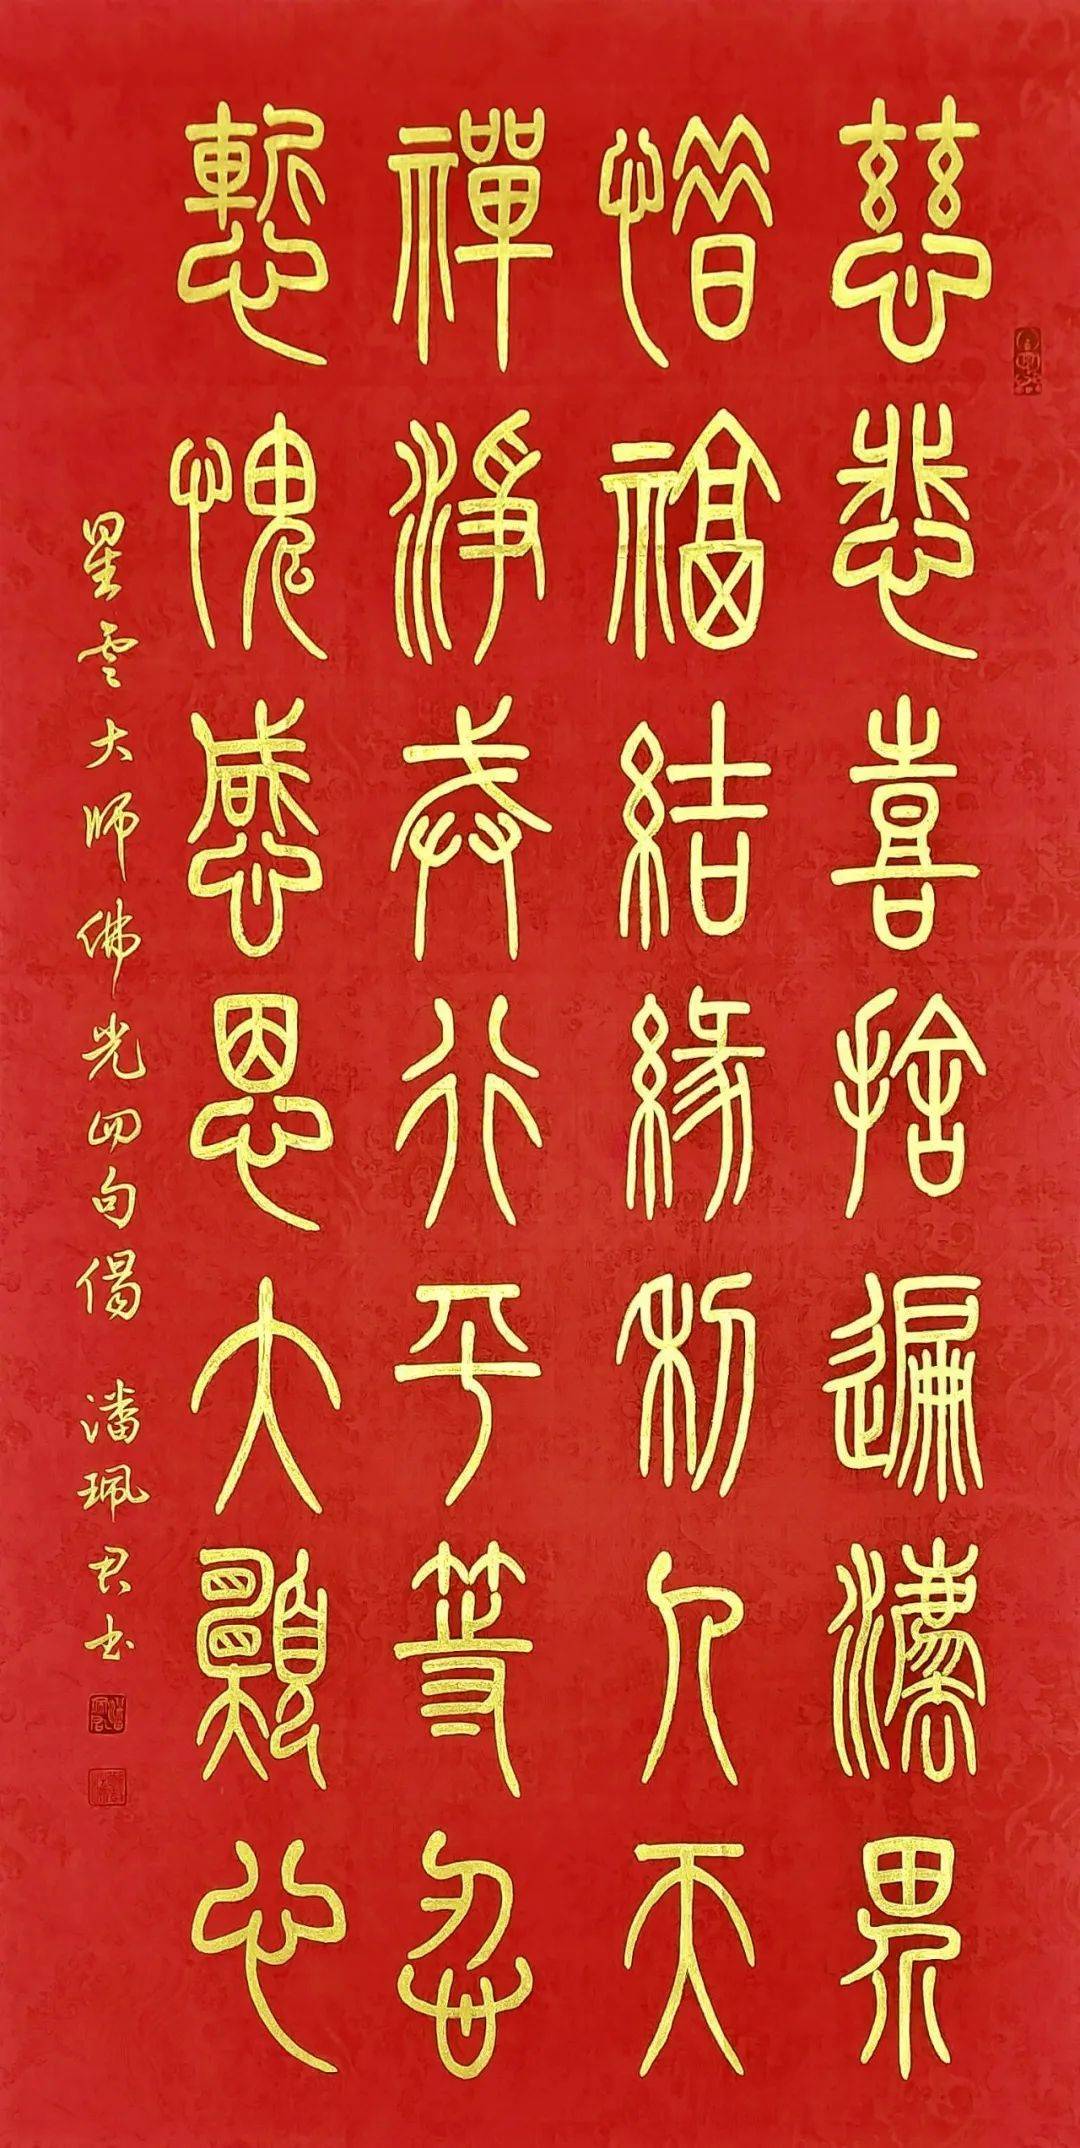 慈悲喜捨遍灋界
惜福結緣利人天
禪淨戒行平等忍
慙愧感恩大願心
星雲大师佛光四句偈 潘珮君书